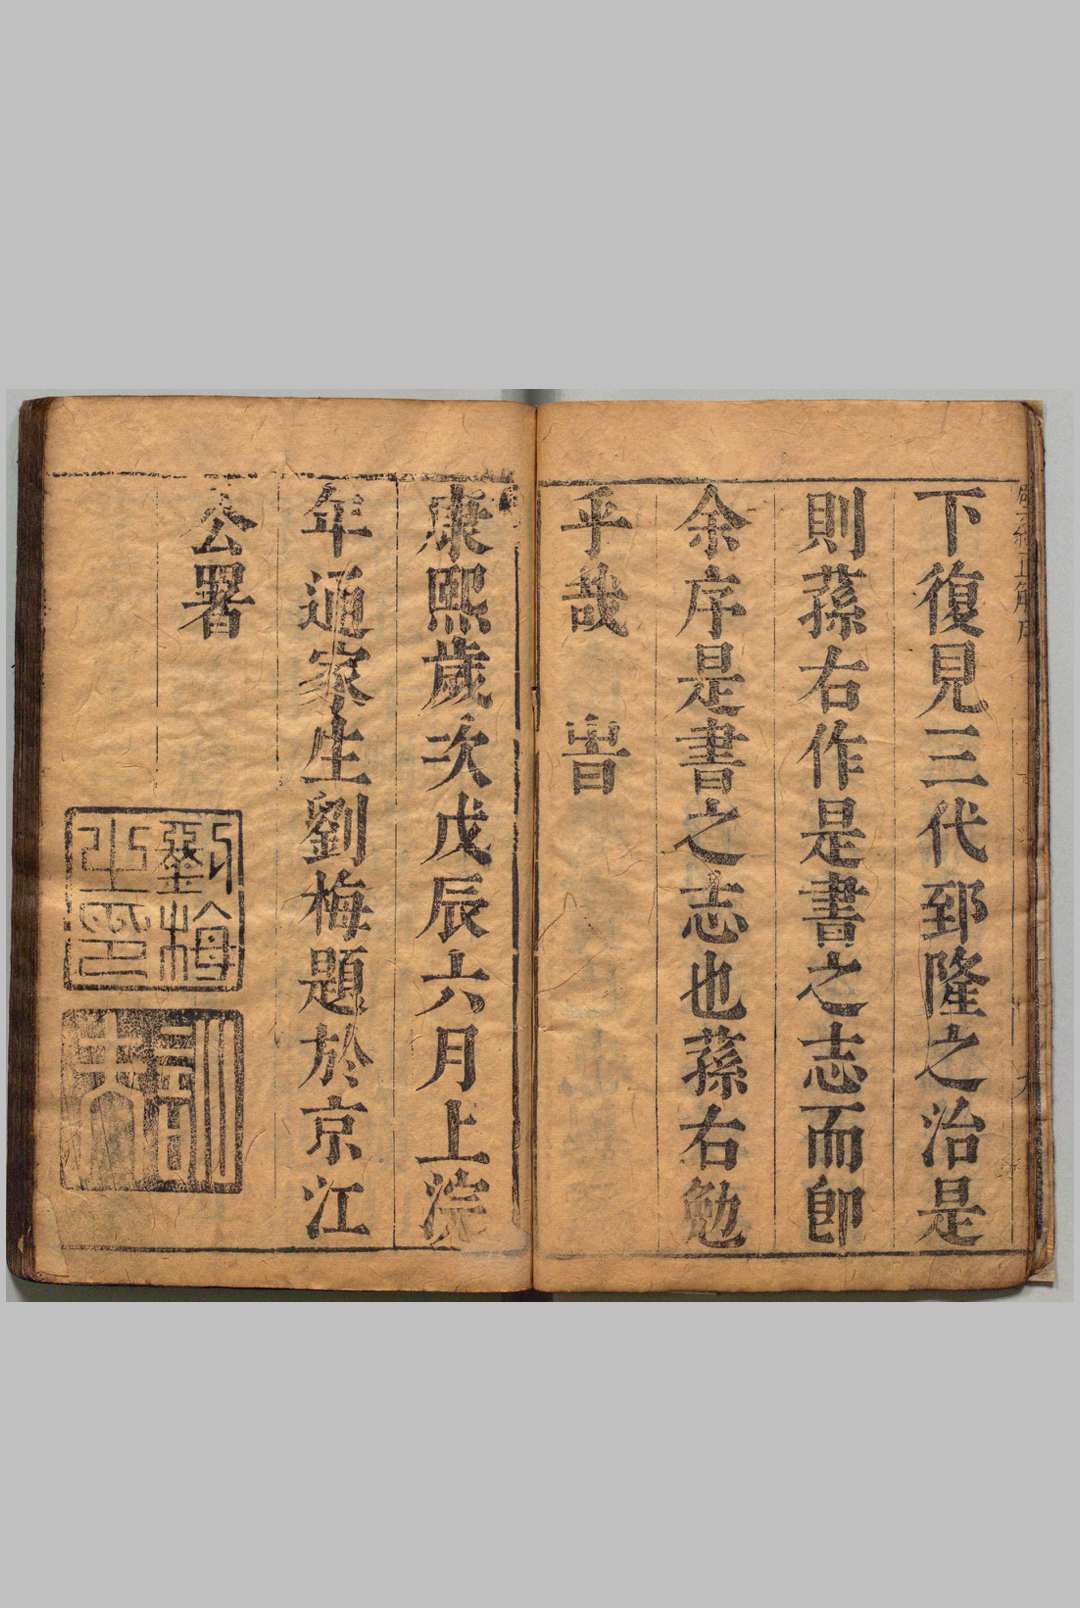 下復見三代郅隆之治是
則蓀右作是書之志而卽
余序是書之志也蓀右勉
乎哉　旹
康熙歲次戊辰六月上浣
年通家生劉梅題於京江
公署
劉梅
之印